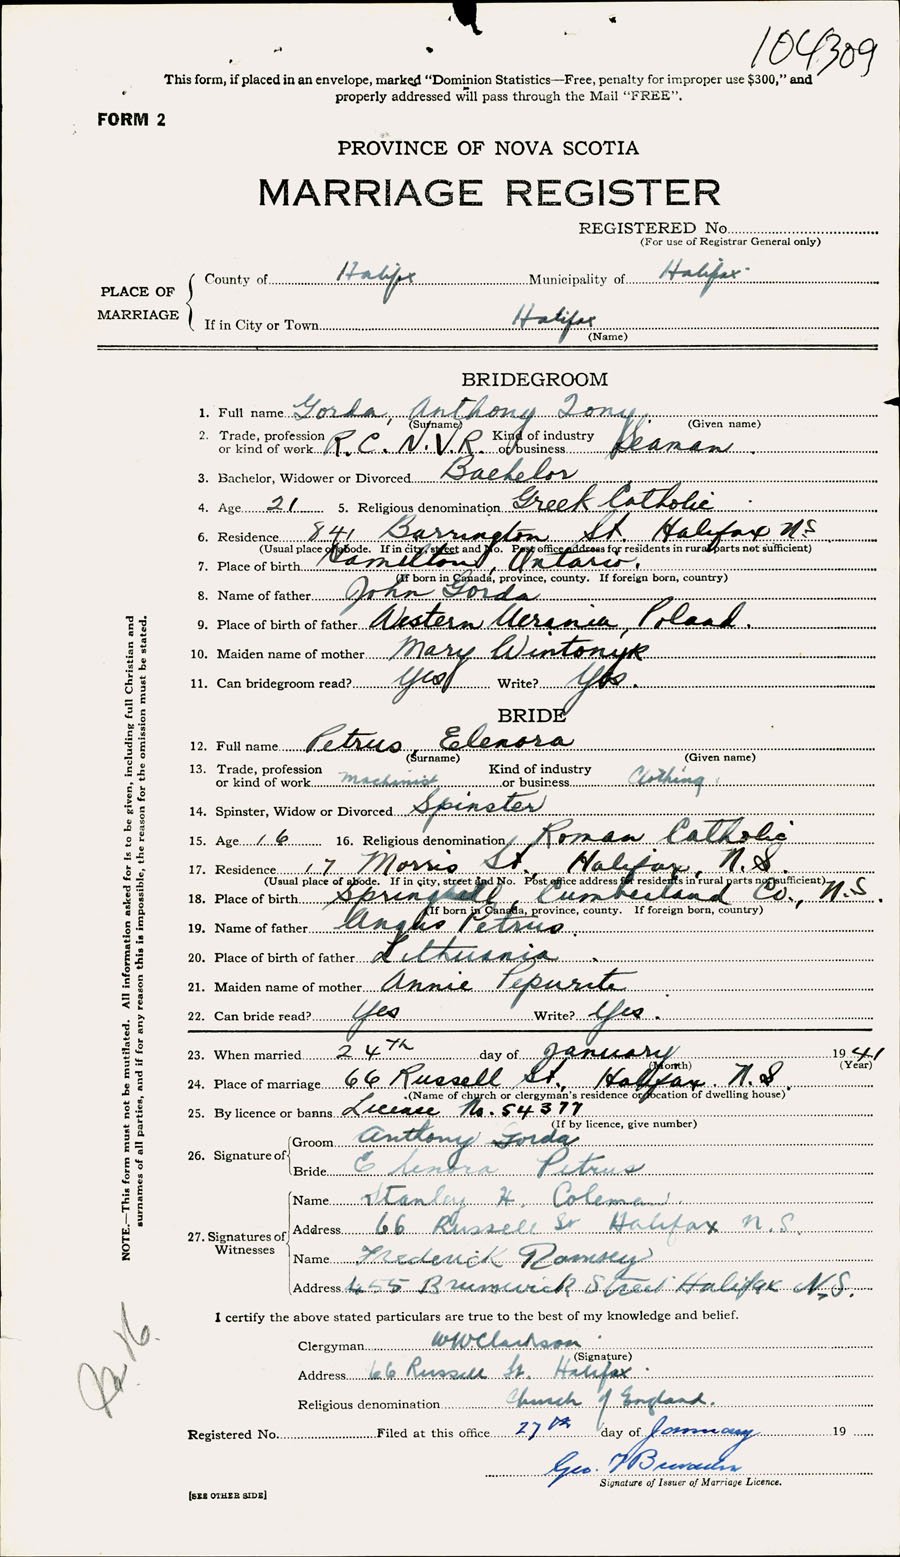 104309
This form, if placed in an envelope, marked "Dominion Statistics—Free, penalty for improper use $300," and
properly addressed will pass through the Mail "FREE".
FORM 2
PROVINCE OF NOVA SCOTIA
MARRIAGE REGISTER
REGISTERED No.
(For use of Registrar General only)
PLACE OF MARRIAGE
County of Halifax Municipality of Halifax
If in City or Town Halifax
(Name)
BRIDEGROOM
1. Full name Gorda, Anthony Tony
(Surname) (Given name)
2. Trade, profession or kind of work R.C.N.V.R. Kind of industry or business Seaman
3. Bachelor, Widower or Divorced Bachelor
4. Age 21 5. Religious denomination Greek Catholic
6. Residence 841 Barrington St. Halifax N.S
(Usual place of abode. If in city, street and No. Post office address for residents in rural parts not sufficient)
7. Place of birth Hamilton, Ontario.
(If born in Canada, province, county. If foreign born, country)
8. Name of father John Gorda
9. Place of birth of father Western Ucrania, Poland.
10. Maiden name of mother Mary Wintonyk
11. Can bridegroom read? Yes Write? Yes.
BRIDE
12. Full name Petrus, Elenora
(Surname) (Given name)
13. Trade, profession or kind of work Machinist Kind of industry or business Clothing.
14. Spinster, Widow or Divorced Spinster
15. Age 16 16. Religious denomination Roman Catholic
17. Residence 17 Morris St., Halifax, N.S.
(Usual place of abode. If in city, street and No. Post office address for residents in rural parts not sufficient)
18. Place of birth Springhill, Cumberland Co., N.S.
(If born in Canada, province, county. If foreign born, country)
19. Name of father Angus Petrus.
20. Place of birth of father Lithuania.
21. Maiden name of mother Annie Pepurite
22. Can bride read? Yes Write? Yes.
23. When married 24th day of January 1941
(Month) (Year)
24. Place of marriage 66 Russell St., Halifax. N.S.
(Name of church or clergyman's residence or location of dwelling house)
25. By licence or banns License No. 54377
(If by licence, give number)
26. Signature of Groom Anthony Gorda
Bride Elenora Petrus
27. Signatures of Witnesses
Name Stanley H. Coleman
Address 66 Russell St Halifax N.S.
Name Frederick Ramsey
Address 455 Brunswick Street Halifax N.S.
I certify the above stated particulars are true to the best of my knowledge and belief.
Clergyman WWClarkson
(Signature)
Address 66 Russell St. Halifax.
Religious denomination Church of England.
Registered No. Filed at this office 27th day of January 19
Geo.
Signature of Issuer of Marriage Licence.
[SEE OTHER SIDE]
NOTE.—This form must not be mutilated. All information asked for is to be given, including full Christian and
surnames of all parties, and if for any reason this is impossible, the reason for the omission must be stated.